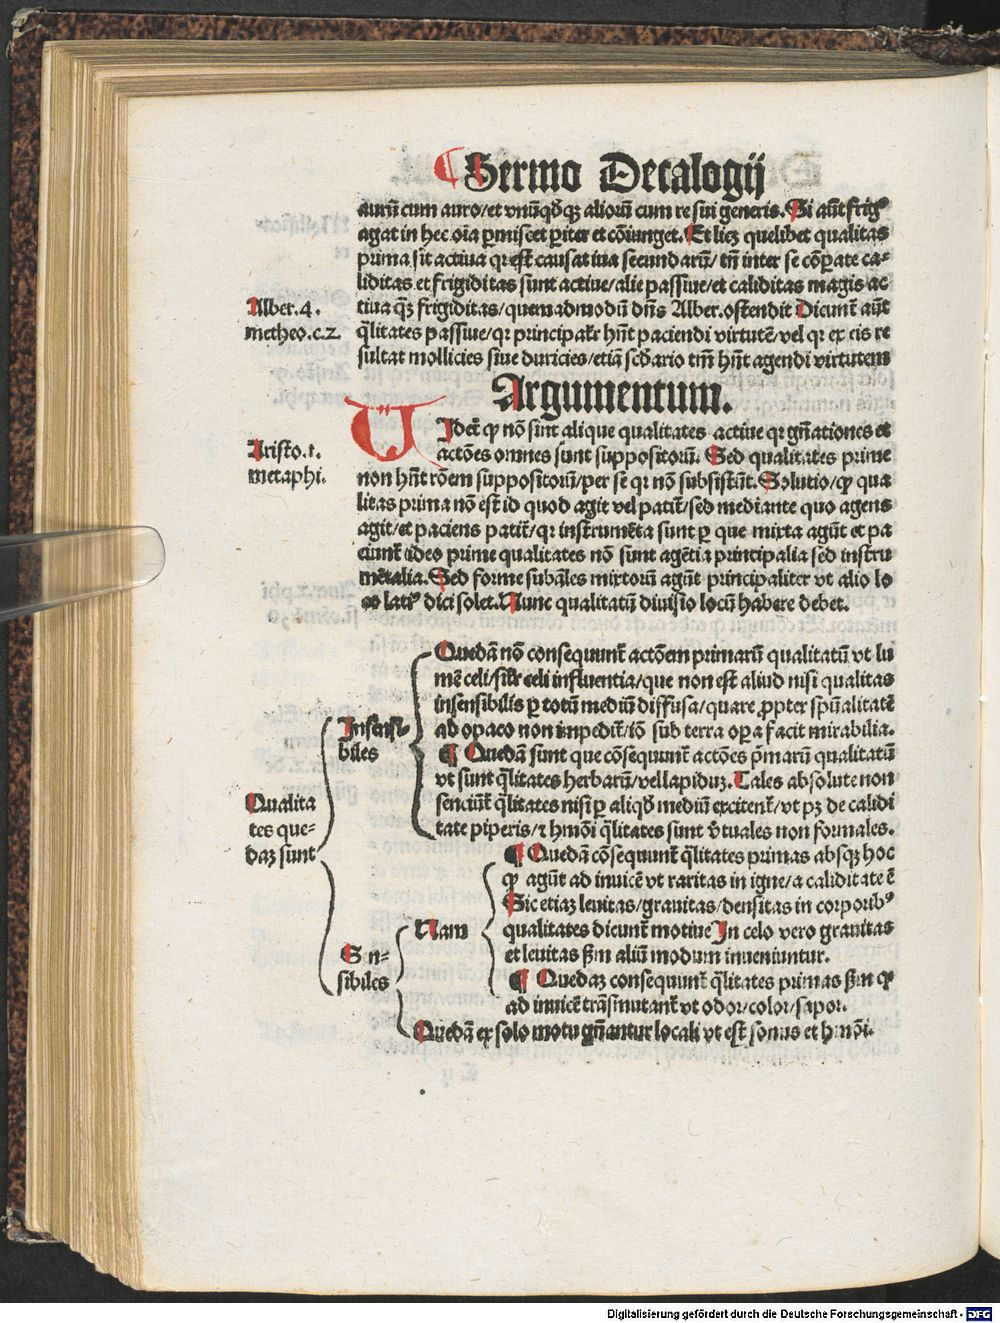 Sermo Decalogij
aurū cum auro/et vnūqđqꝫ aliorū cum re sui generis. Si aūt frigꝰ
agat in hec oīa ꝑmiscet ꝑiter et cōiunget. Et licꝫ quelibet qualitas
prima sit actiua qr est causatiua secundarū/ tn̄ inter se cōꝑate ca⸗
liditas et frigiditas sunt actiue/alie passiue/et caliditas magis ac
tiua qꝫ frigiditas/quemadmodū dn̄s Alber. ostendit Dicunt̄ aūt
Alber. 4.
metheo.c.2.
q̄litates passiue/qr principalr̄ hn̄t paciendi virtutē/vel qr ex eis re
sultat mollicies siue duricies/etiā scđario tn̄ hn̄t agendi virtutem
Argumentum.
Videt̄ ꝙ nō sint alique qualitates actiue qr gn̄ationes et
actōes omnes sunt suppositorū. Sed qualitates prime
Aristo.1.
metaphi.
non hn̄t rōem suppositorū/per se qr nō subsistūt. Solutio/ꝙ qua
litas prima nō est id quod agit vel patit̄/sed mediante quo agens
agit/et paciens patit̄/qr instrumēta sunt ꝑ que mixta agūt et pa
ciunt̄ ideo prime qualitates nō sunt agētia principalia sed instru
mētalia. Sed forme subāles mixtorū agūt principaliter vt alio lo
co latiꝰ dici solet. Nunc qualitatū diuisio locū habere debet.
Qualita
tes que⸗
daꝫ sunt
Insensi⸗
biles
Quedā nō consequunt̄ actōem primarū qualitatū vt lu
mē celi/silr̄ celi influentia/que non est aliud nisi qualitas
insensibilis ꝑ totū mediū diffusa/quare ꝓpter spūalitatē
ab opaco non impedit̄/iō sub terra oꝑa facit mirabilia.
¶ Quedā sunt que cōsequunt̄ actōes p̄marū qualitatū
vt sunt q̄litates herbarū/vel lapiduꝫ. Tales absolute non
senciūt̄ q̄litates nisi ꝑ aliqđ mediū excitent̄/vt pꝫ de calidi
tate piperis/⁊ hmōi q̄litates sunt v̄tuales non formales.
Sen⸗
sibiles
Nam
¶ Quedā cōsequunt̄ q̄litates primas absqꝫ hoc
ꝙ agūt ad inuicē vt raritas in igne/a caliditate ē
Sic etiaꝫ leuitas/grauitas/densitas in corporibꝰ
qualitates dicunt̄ motiue In celo vero grauitas
et leuitas ẜm aliū modum inueniuntur.
¶ Quedaꝫ consequunt̄ q̄litates primas ẜm ꝙ
ad inuicē trāsmutant̄ vt odor/color/sapor.
Quedā ex solo motu gn̄antur locali vt est sonus et hmōi.
Digitalisierung gefördert durch die Deutsche Forschungsgemeinschaft - DFG